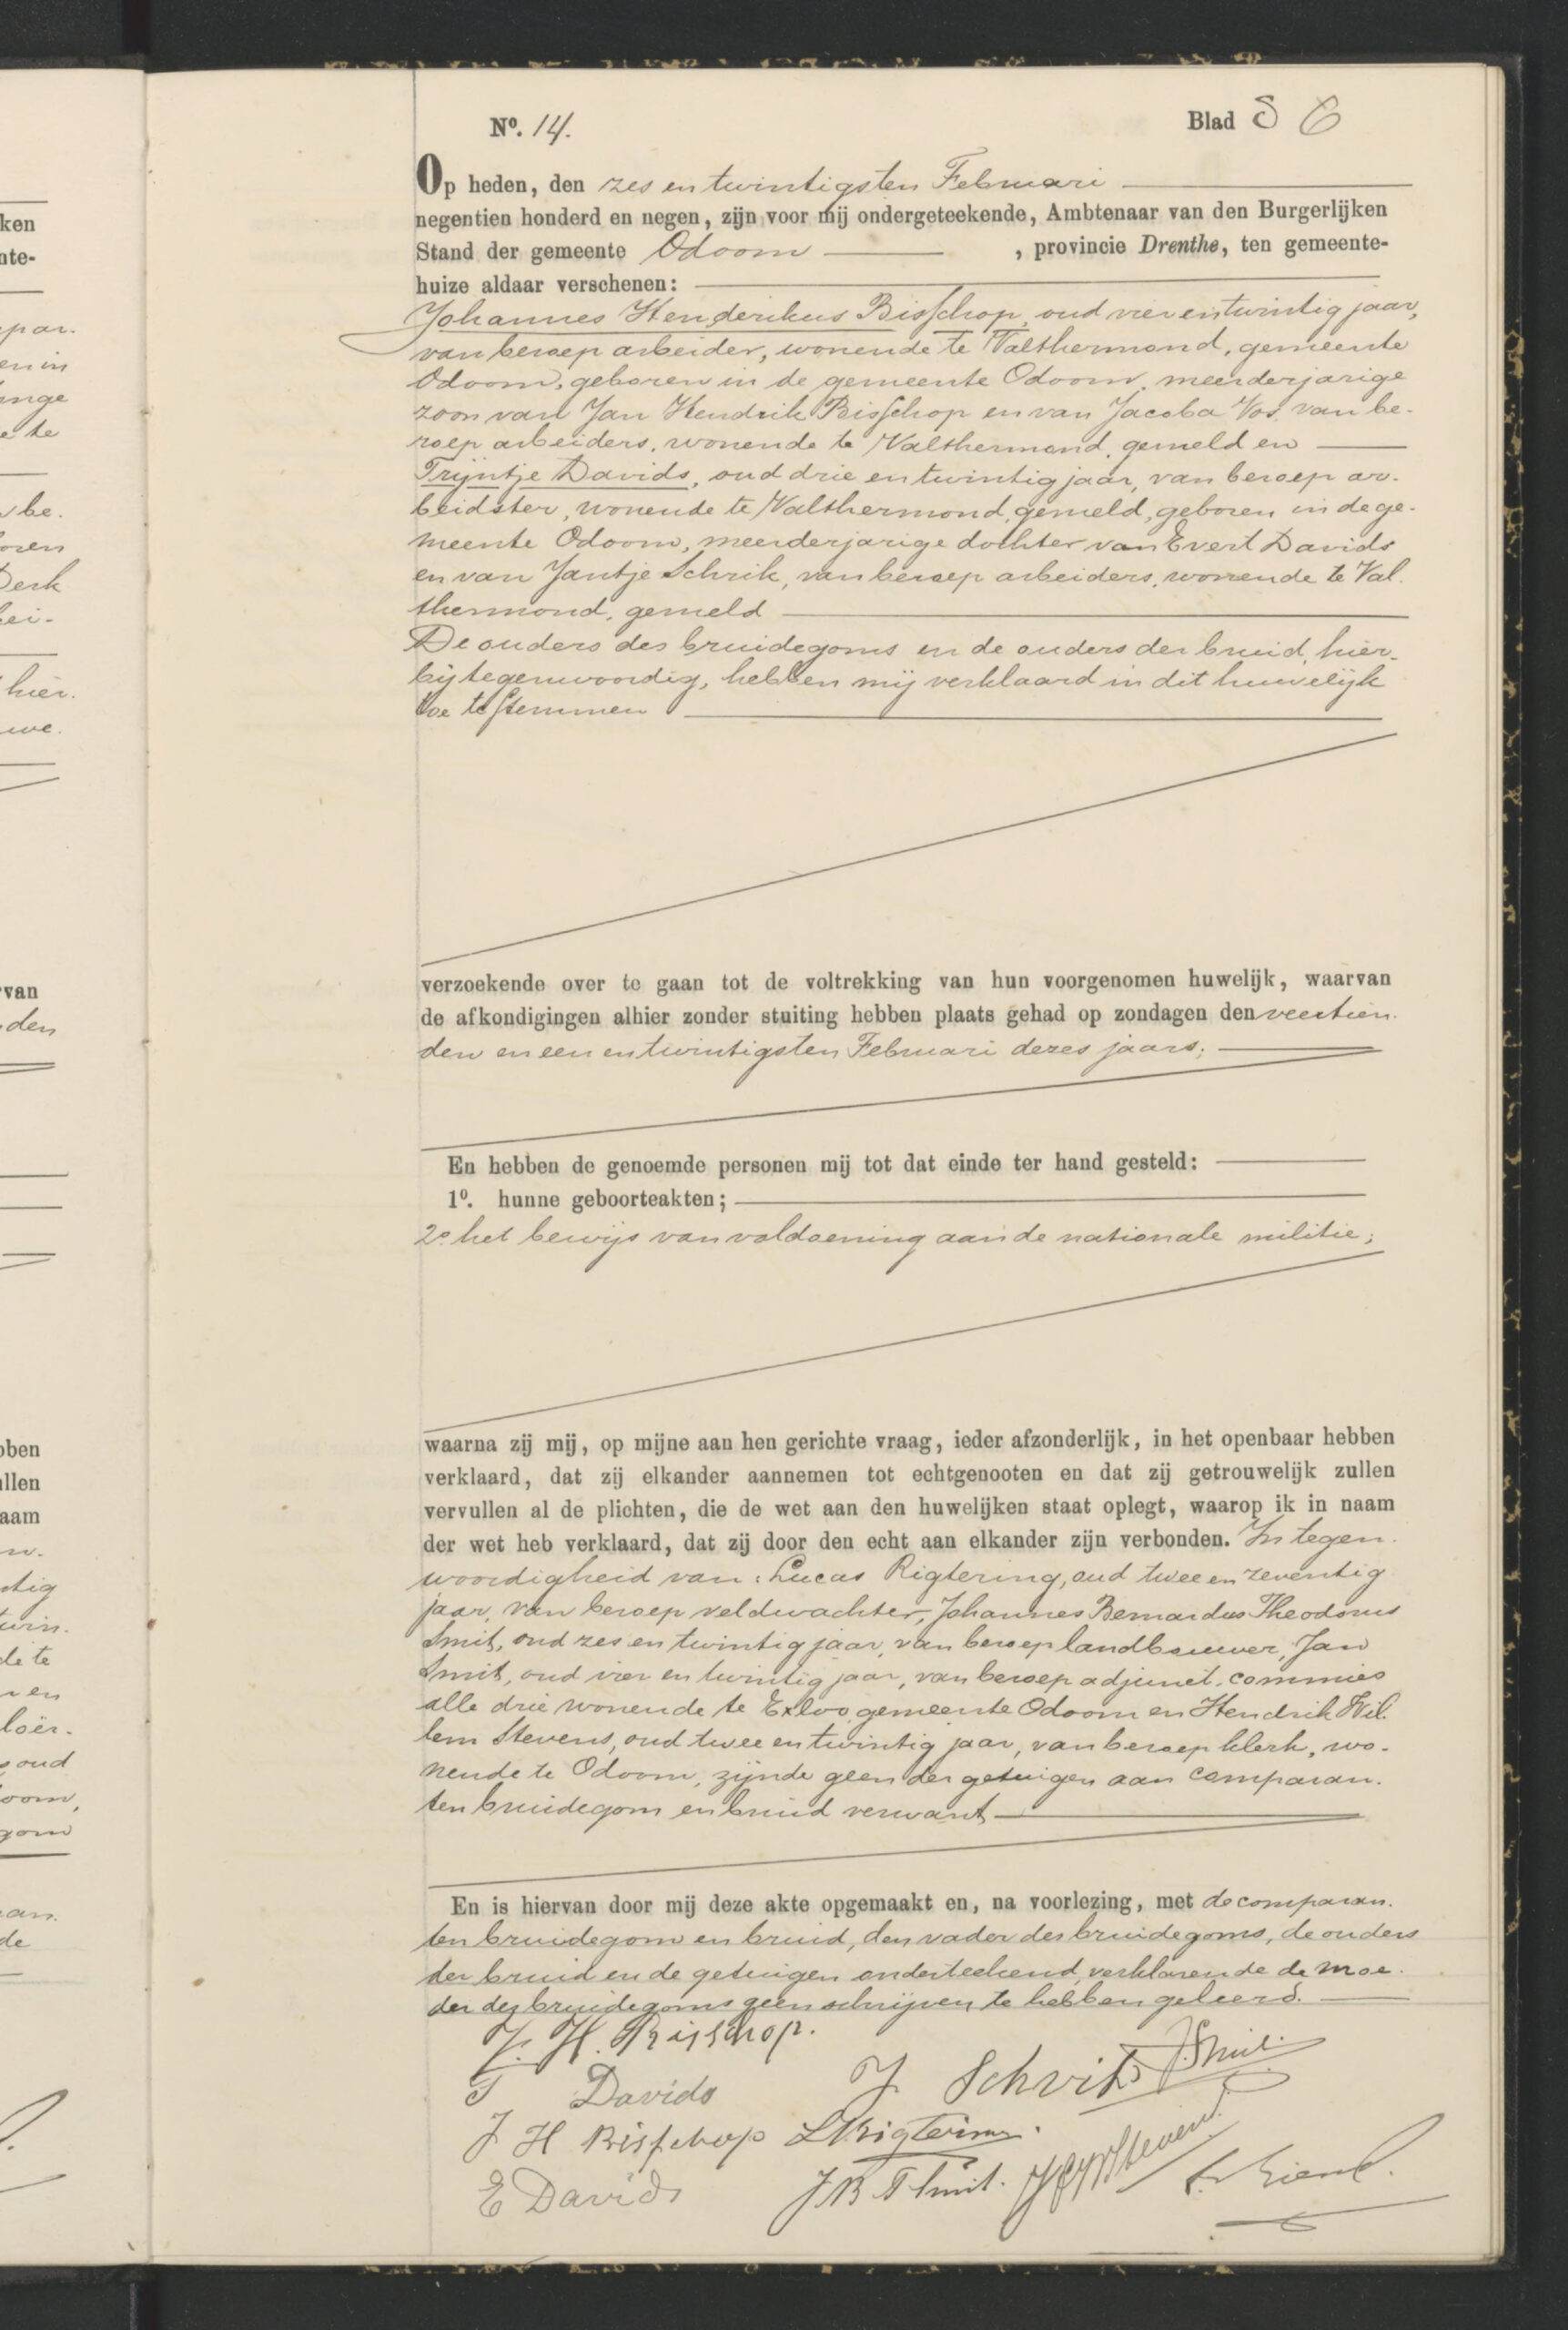 ken
nte-
par.
en in
inge
e te
be.
oren
Derk
bei-
hier.
we.
van
den
bben
llen
aam
stig
twin.
de te
en
loër.
oud
oom,
gom
an.
de
Nº. 14. Blad 8
Op heden, den zes en twintigsten Februari
negentien honderd en negen, zijn voor mij ondergeteekende, Ambtenaar van den Burgerlijken
Stand der gemeente Odoorn, provincie Drenthe, ten gemeente-
huize aldaar verschenen:
Johannes Henderikus Bisschop, oud vier en twintig jaar,
van beroep arbeider, wonende te Valthermond, gemeente
Odoorn, geboren in de gemeente Odoorn, meerderjarige
zoon van Jan Hendrik Bisschop en van Jacoba Vos, van be-
roep arbeiders, wonende te Valthermond, gemeld en
Trijntje Davids, oud drie en twintig jaar, van beroep ar-
beidster, wonende te Valthermond, gemeld, geboren in de ge-
meente Odoorn, meerderjarige dochter van Evert Davids
en van Jantje Schrik, van beroep arbeiders, wonende te Val-
thermond, gemeld
De ouders des bruidegoms en de ouders der bruid, hier-
bij tegenwoordig, hebben mij verklaard in dit huwelijk
toe te stemmen
verzoekende over te gaan tot de voltrekking van hun voorgenomen huwelijk, waarvan
de afkondigingen alhier zonder stuiting hebben plaats gehad op zondagen den veertien-
den en een en twintigsten Februari dezes jaars;
En hebben de genoemde personen mij tot dat einde ter hand gesteld:
1º. hunne geboorteakten;
2º het bewijs van voldoening aan de nationale militie;
waarna zij mij, op mijne aan hen gerichte vraag, ieder afzonderlijk, in het openbaar hebben
verklaard, dat zij elkander aannemen tot echtgenooten en dat zij getrouwelijk zullen
vervullen al de plichten, die de wet aan den huwelijken staat oplegt, waarop ik in naam
der wet heb verklaard, dat zij door den echt aan elkander zijn verbonden. In tegen-
woordigheid van: Lucas Rigtering, oud twee en zeventig
jaar, van beroep veldwachter, Johannes Bernardus Theodorus
Smit, oud zes en twintig jaar, van beroep landbouwer, Jan
Smit, oud vier en twintig jaar, van beroep adjunct-commies
alle drie wonende te Exloo gemeente Odoorn en Hendrik Wil-
lem Stevens, oud twee en twintig jaar, van beroep klerk, wo-
nende te Odoorn, zijnde geen der getuigen aan comparan-
ten bruidegom en bruid verwant
En is hiervan door mij deze akte opgemaakt en, na voorlezing, met de comparan-
ten bruidegom en bruid, den vader des bruidegoms, de ouders
der bruid en de getuigen onderteekend, verklarende de moe-
der des bruidegoms geen schrijven te hebben geleerd.
J. H. Bisschop.
T Davids J Schrik JSmit
J H Bisschop LRigtering.
E Davids J B T Smit. HWStevens